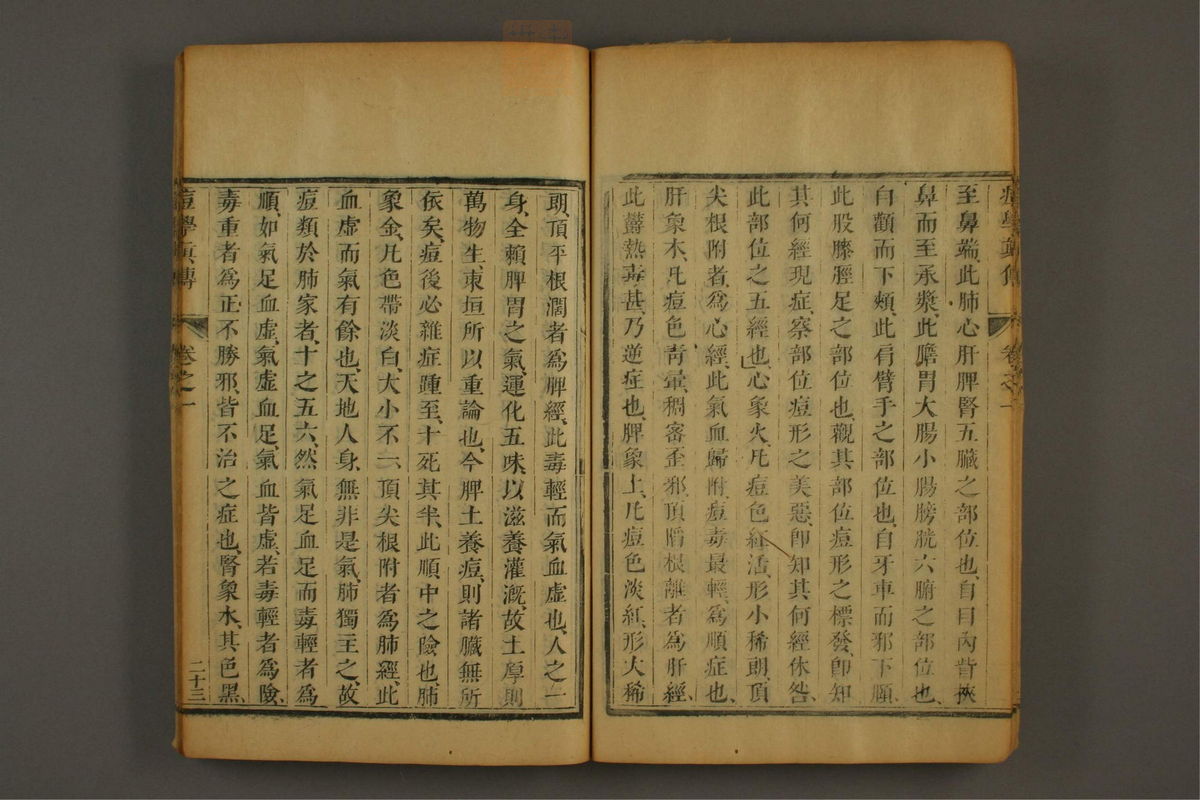 痘學真傳 卷之一
至鼻端、此肺心肝脾腎五臟之部位也、自目內眥挾
鼻而至承漿、此膽胃大腸小腸膀胱六腑之部位也、
自顴而下頰、此肩臂手之部位也、自牙車而邪下頤、
此股膝脛足之部位也、觀其部位痘形之標發、卽知
其何經現症、察部位痘形之美惡、卽知其何經休咎、
此部位之五經也、心象火、凡痘色紅活、形小稀朗、頂
尖根附者、爲心經、此氣血歸附、痘毒最輕、爲順症也、
肝象木、凡痘色靑暈、稠密歪邪、頂陷根離者爲肝經
此欝熱毒甚、乃逆症也、脾象土、凡痘色淡紅、形大稀
朗、頂平根濶者爲脾經、此毒輕而氣血虛也、人之一
身、全賴脾胃之氣、運化五味、以滋養灌漑、故土厚則
萬物生、東垣所以重論也、今脾土養痘、則諸臟無所
依矣、痘後必雜症踵至、十死其半、此順中之險也、肺
象金、凡色帶淡白、大小不一、頂尖根附者爲肺經、此
血虛而氣有餘也、天地人身、無非是氣、肺獨主之、故
痘類於肺家者、十之五六、然氣足血足而毒輕者爲
順、如氣足血虛、氣虛血足、氣血皆虛、若毒輕者爲險、
毒重者爲正不勝邪、皆不治之症也、腎象水、其色黑、
痘學真傳 卷之一 二十三